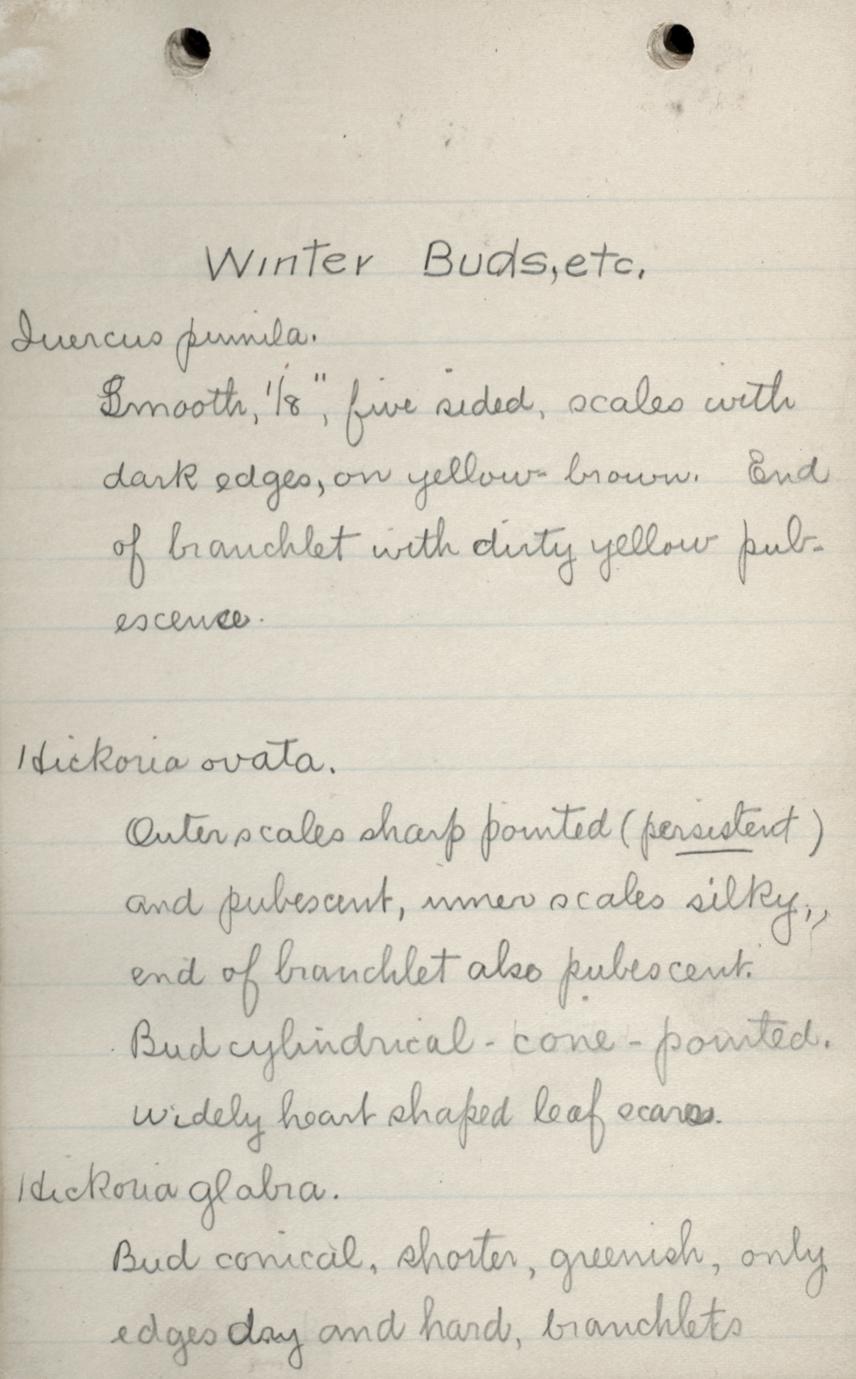 Winter Buds, etc.
Quercus pumila.
Smooth, 1/8", five sided, scales with
dark edges, on yellow-brown. End
of branchlet with dirty yellow pub-
escence.
Hickoria ovata.
Outer scales sharp pointed (persistent)
and pubescent, inner scales silky,,
end of branchlet also pubescent.
Bud cylindrical - cone - pointed.
Widely heart shaped leaf scars.
Hickoria glabra.
Bud conical, shorter, greenish, only
edges dry and hard, branchlets